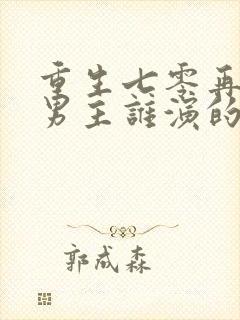 重生七零再
男主誰演的
郭成森